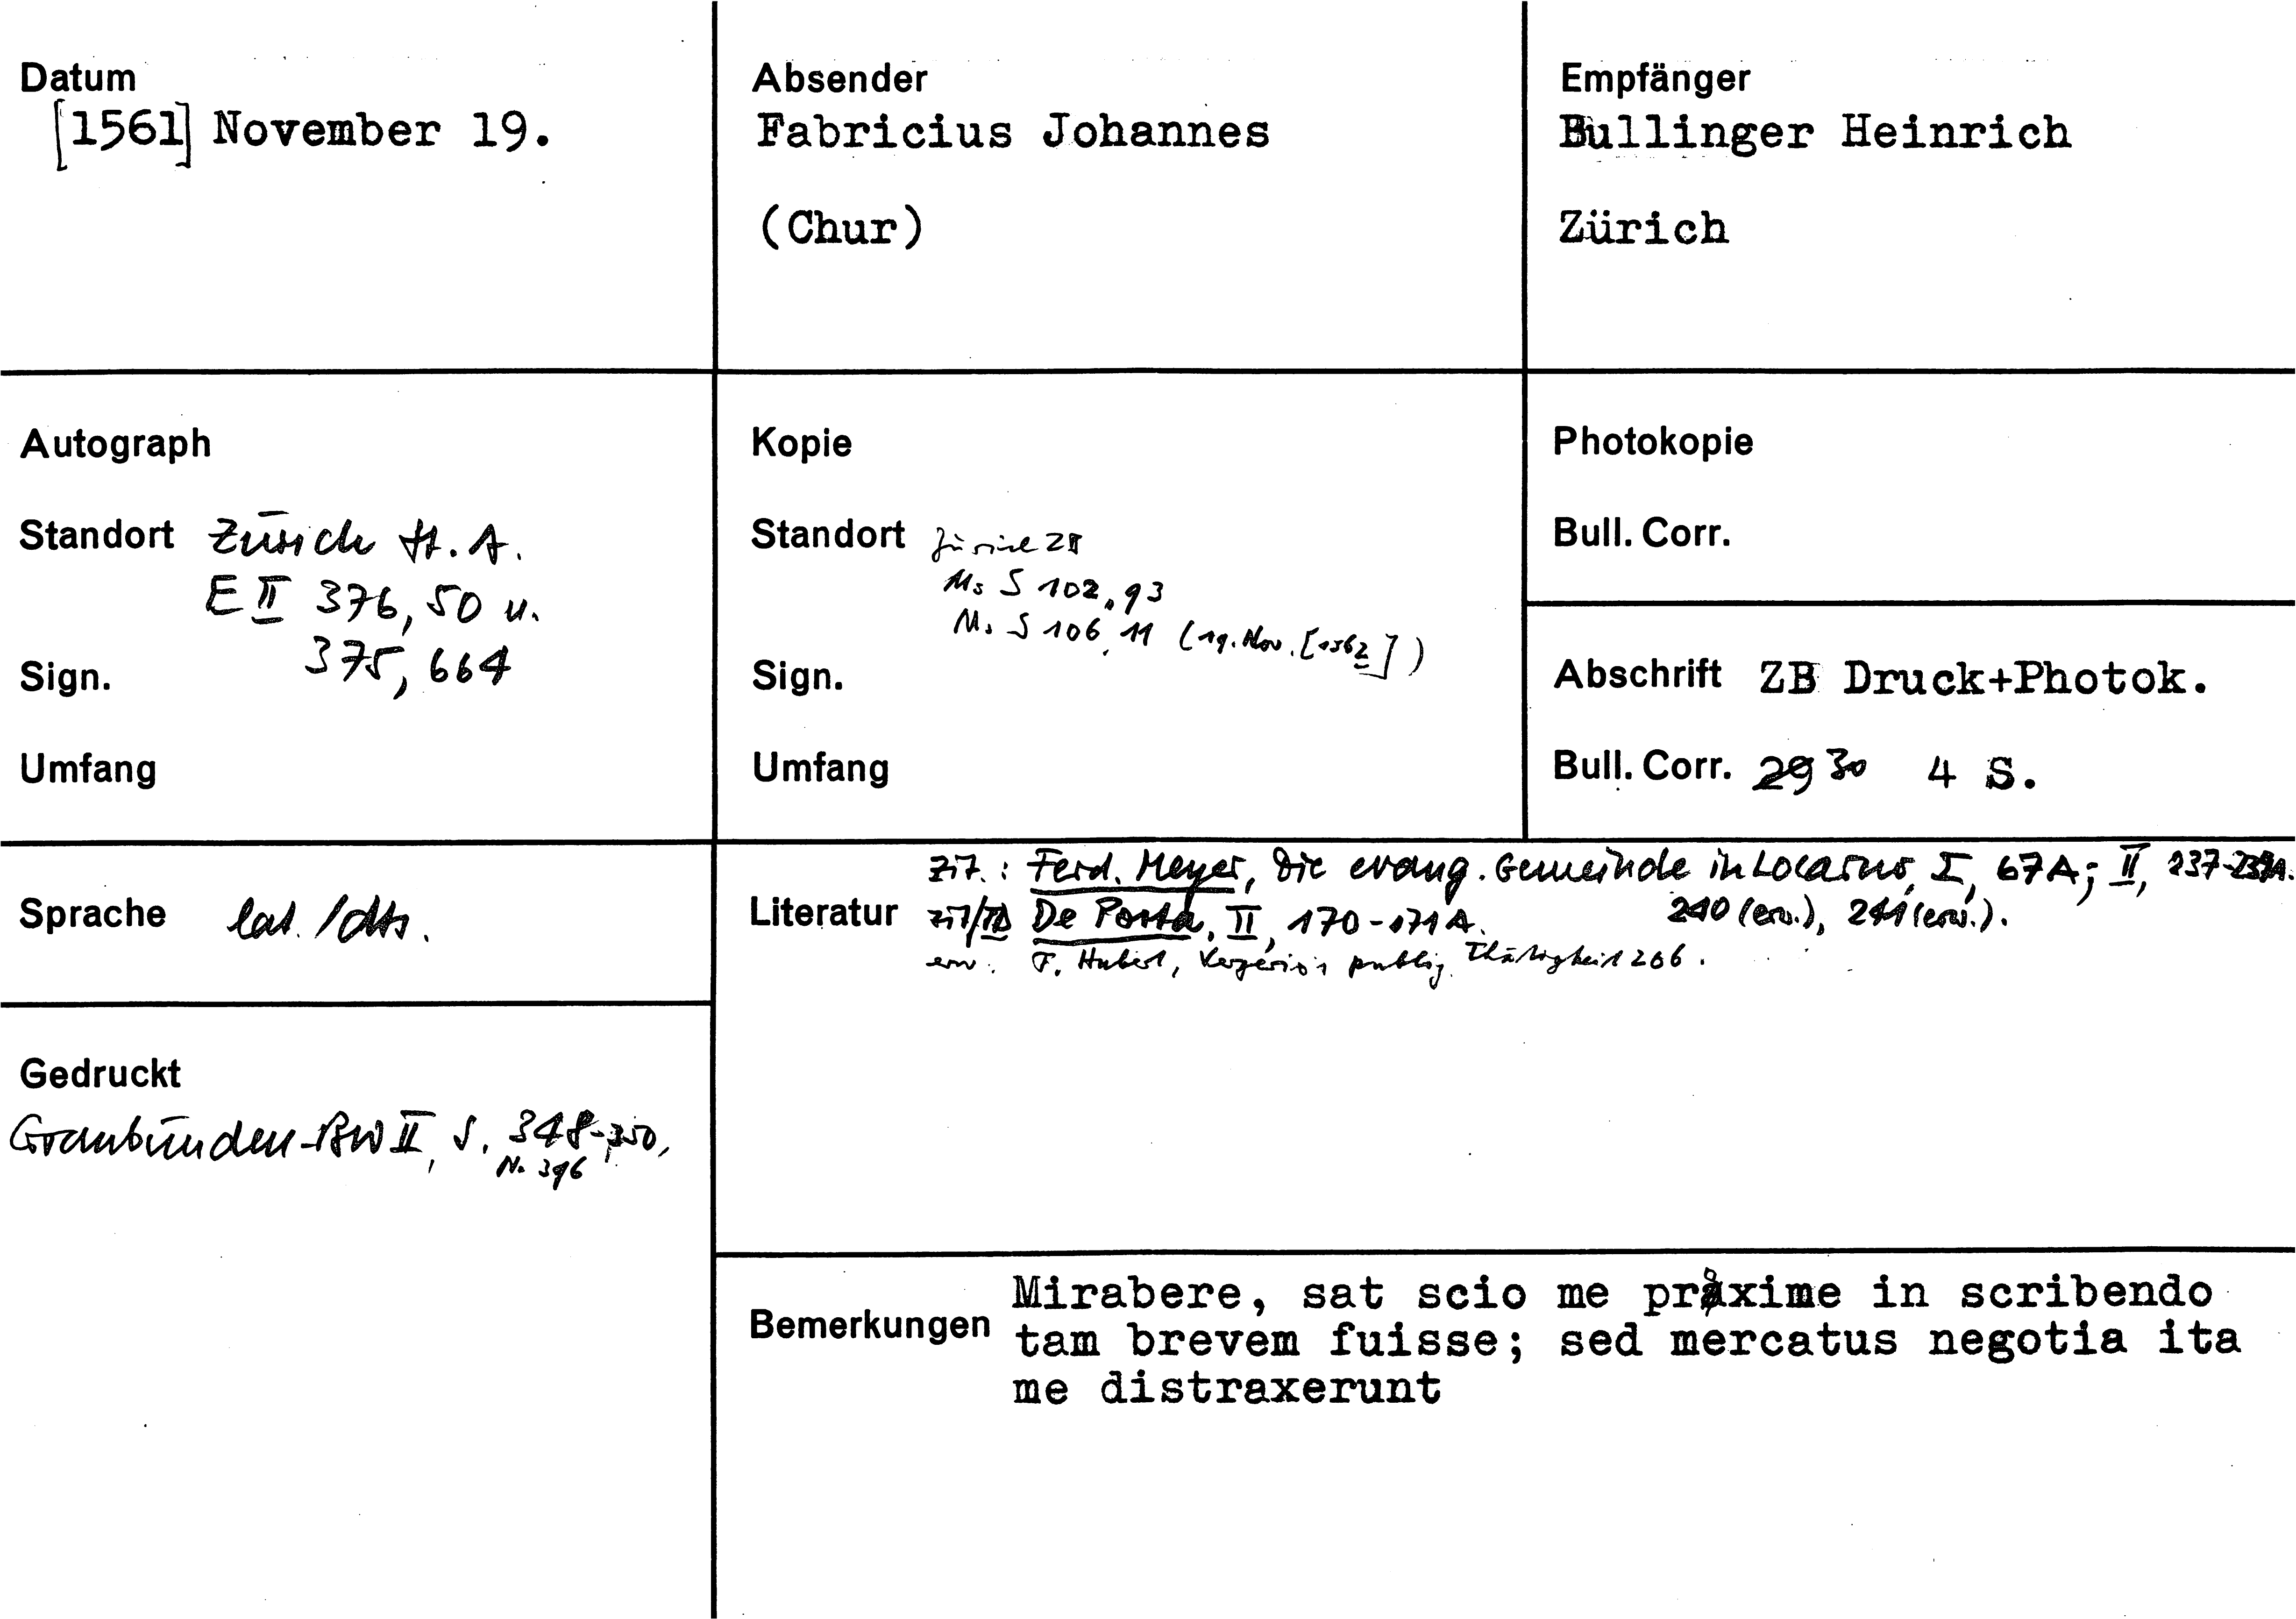 Datum
[1561] November 19.
Absender
Fabricius Johannes
(Chur)
Empfänger
Bullinger Heinrich
Zürich
Autograph
Standort Zürich St. A.
E II 376, 50 u.
375, 664
Sign.
Umfang
Kopie
Standort Zürich ZB
Ms S 102, 93
Ms S 106, 11 (19. Nov. [1562])
Sign.
Umfang
Photokopie
Bull. Corr.
Abschrift ZB Druck+Photok.
Bull. Corr. 29 30 4 S.
Sprache lat./dts.
Gedruckt
Graubünden-BW II, S. 348-350,
N. 396
Literatur
zit.: Ferd. Meyer, Die evang. Gemeinde in Locarno, I, 67A; II, 237-239A.
240 (erw.), 241 (erw.).
De Porta, II, 170-171 A.
erw. F. Hubert, Vergerio's publiz. Thätigkeit 266.
Bemerkungen
Mirabere, sat scio me proxime in scribendo
tam brevem fuisse; sed mercatus negotia ita
me distraxerunt